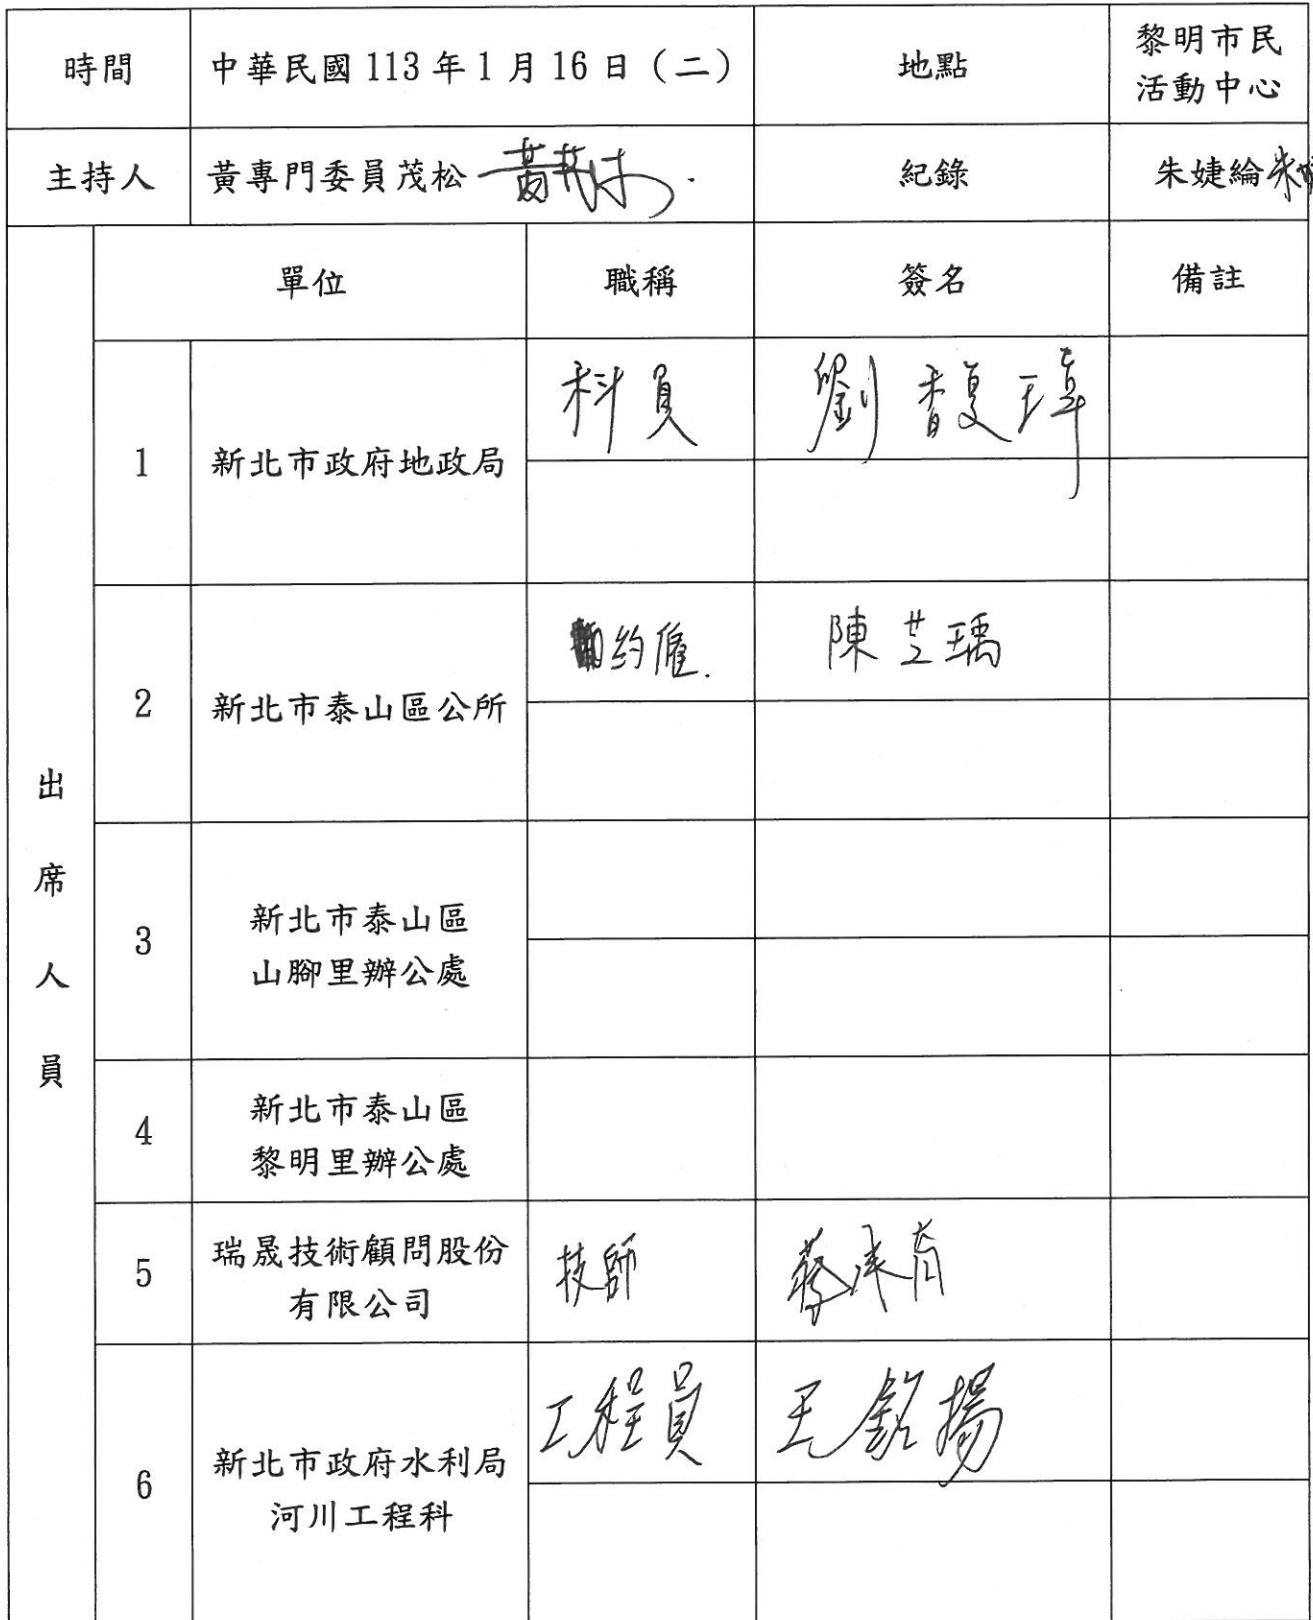 時間 中華民國 113 年 1 月 16 日（二） 地點 黎明市民
活動中心
主持人 黃專門委員茂松 黃茂松 紀錄 朱婕綸
單位 職稱 簽名 備註
出席人員
1 新北市政府地政局 科員 劉馥瑋
2 新北市泰山區公所 約僱. 陳芝瑀
3 新北市泰山區
山腳里辦公處
4 新北市泰山區
黎明里辦公處
5 瑞晟技術顧問股份
有限公司 技師
6 新北市政府水利局
河川工程科 工程員 王銘揚